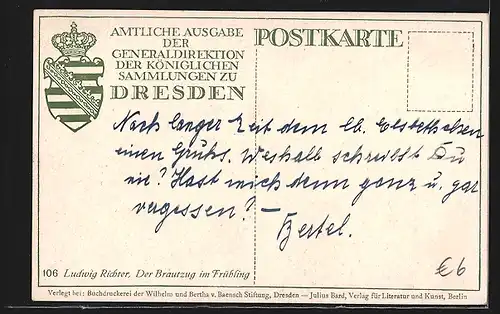 AMTLICHE AUSGABE
DER
GENERALDIREKTION
DER KÖNIGLICHEN
SAMMLUNGEN ZU
DRESDEN
POSTKARTE
Nach langer Zeit dem lb. Elsbethchen
einen Gruß. Weshalb schreibst Du
nie? Hast mich denn ganz u. gar
vergessen? —
Bertel.
106 Ludwig Richter, Der Brautzug im Frühling
€6
Verlegt bei: Buchdruckerei der Wilhelm und Bertha v. Baensch Stiftung, Dresden — Julius Bard, Verlag für Literatur und Kunst, Berlin